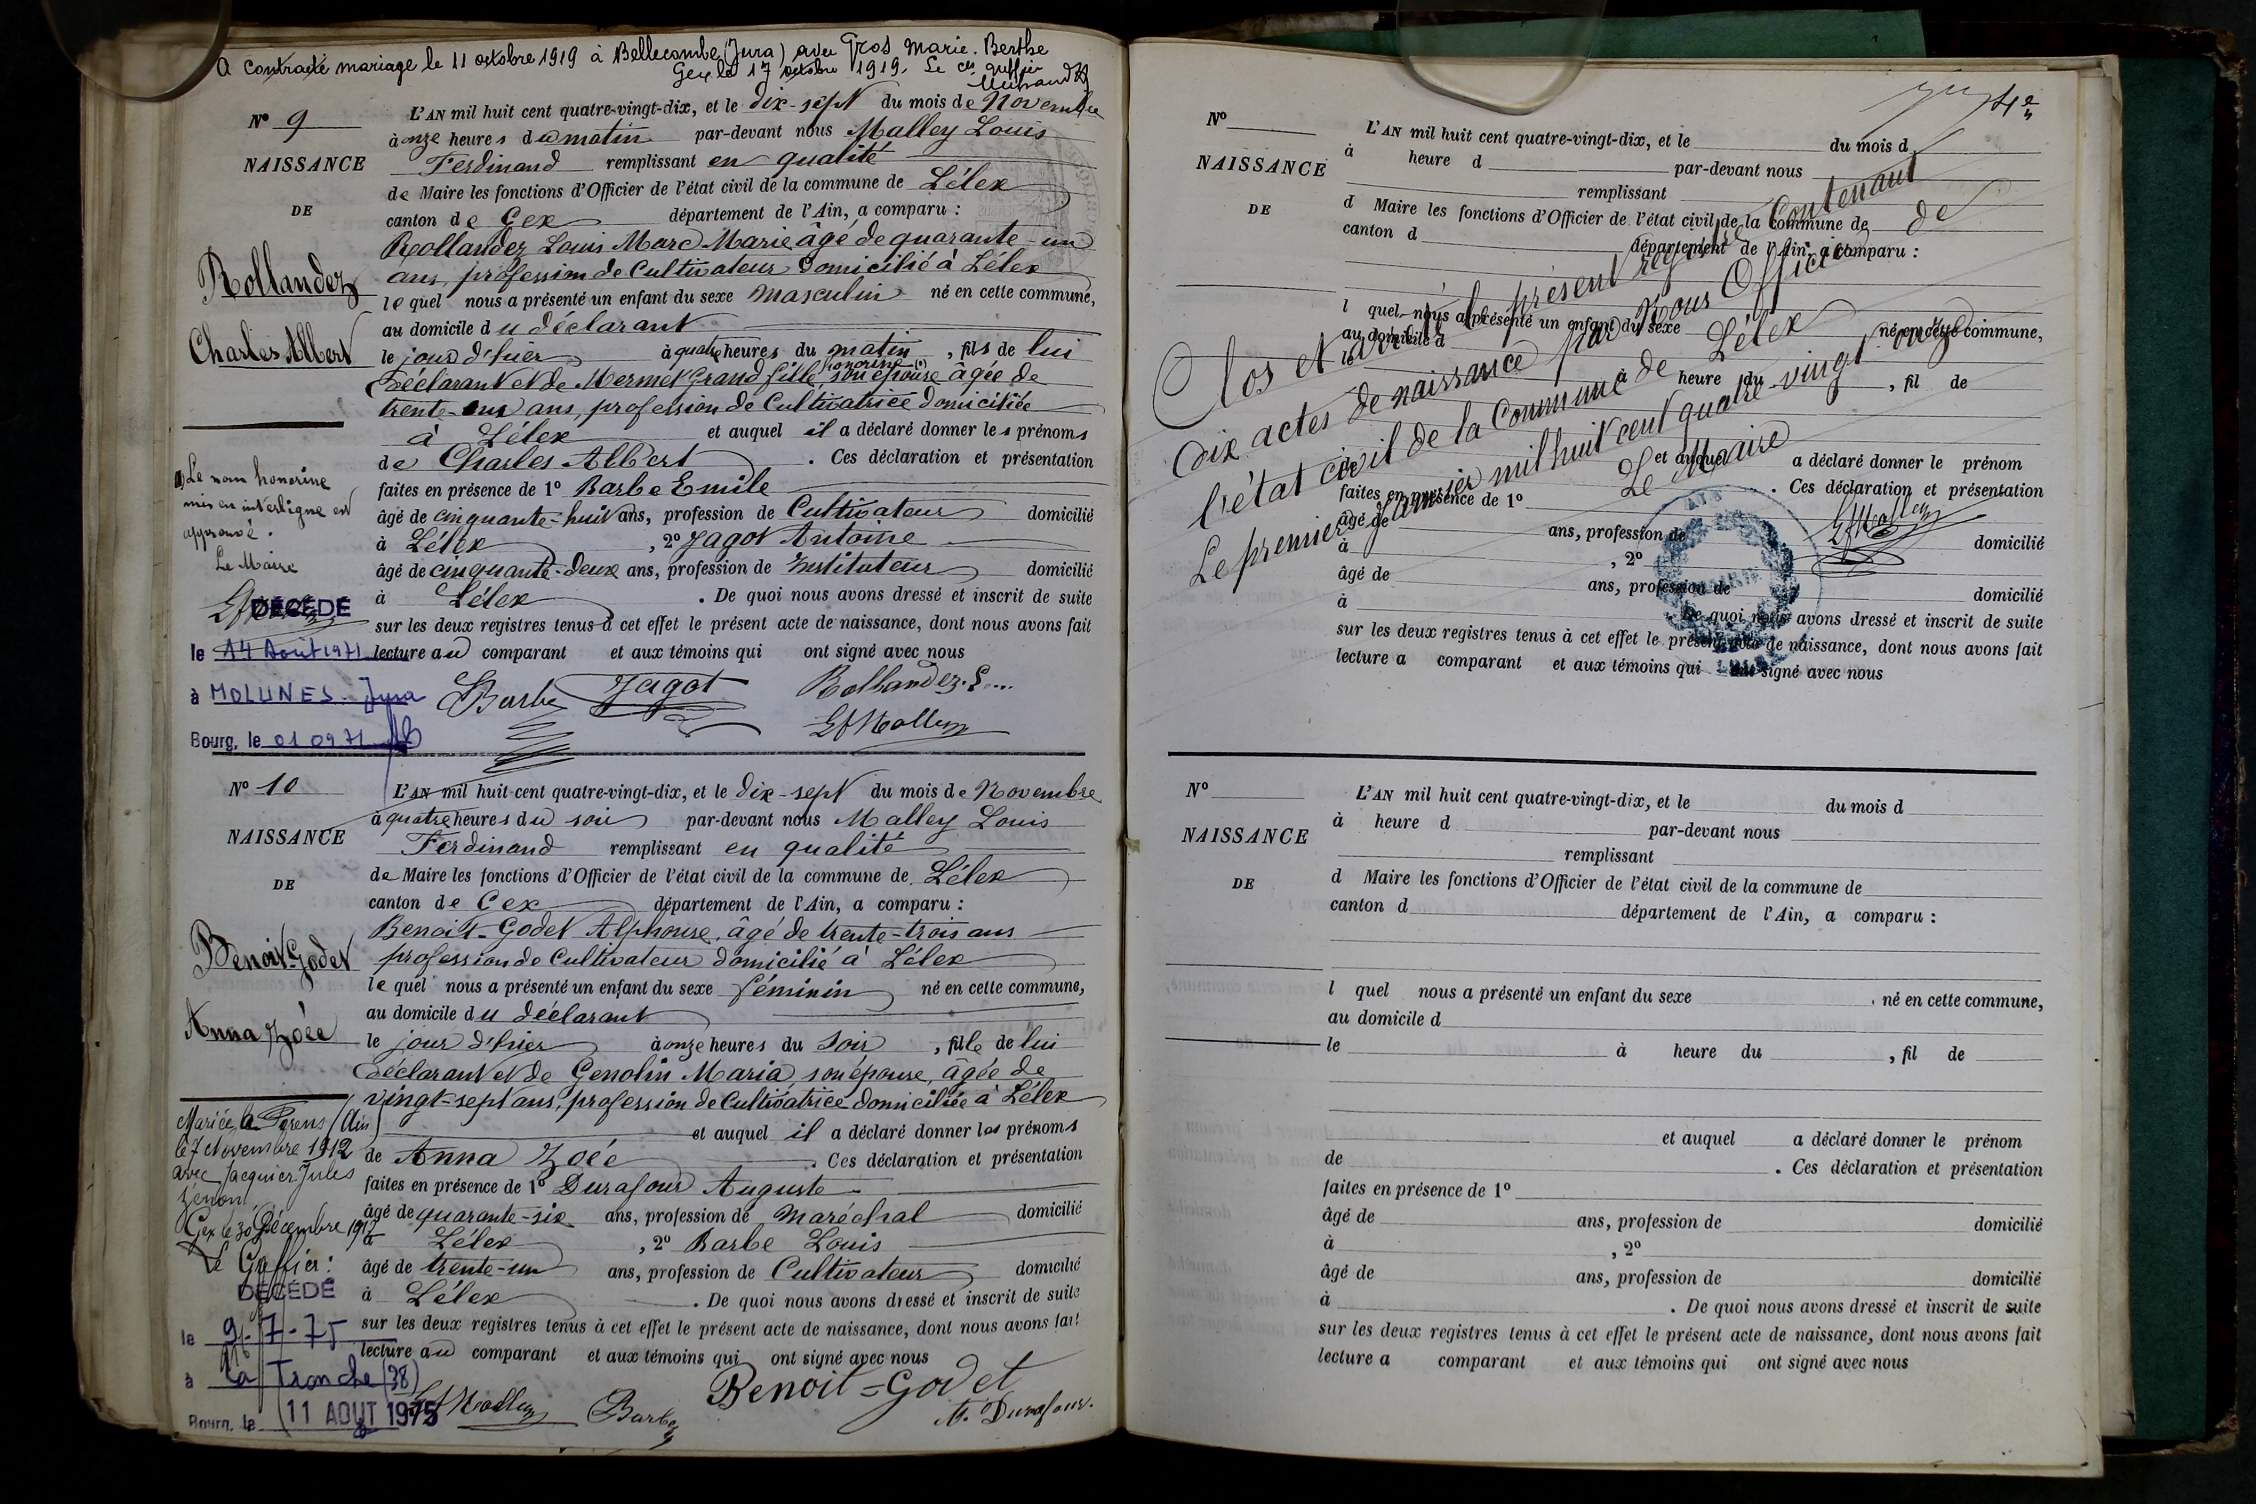 A contracté mariage le 11 octobre 1919 à Bellecombe (Jura) avec Gros Marie. Berthe
Gex le 17 octobre 1919. Le
N° 9
NAISSANCE
DE
Rollandez
Charles Albert
L'AN mil huit cent quatre-vingt-dix, et le dix-sept du mois de Novembre
à onze heures du matin par-devant nous Malley Louis
Ferdinand remplissant en qualité
de Maire les fonctions d'Officier de l'état civil de la commune de Lélex
canton de Gex département de l'Ain, a comparu :
Rollandez Louis Marc Marie âgé de quarante-un
ans, profession de Cultivateur domicilié à Lélex
lequel nous a présenté un enfant du sexe masculin né en cette commune,
au domicile du déclarant
le jour d'hier à quatre heures du matin, fils de lui
honorine (1)
déclarant et de Mermet Grand fille, son épouse âgée de
trente ans, profession de Cultivatrice domiciliée
à Lélex et auquel il a déclaré donner les prénoms
de Charles Albert. Ces déclaration et présentation
faites en présence de 1° Barbe Emile
âgé de cinquante-huit ans, profession de Cultivateur domicilié
à Lélex, 2° Jagot Antoine
âgé de cinquante-deux ans, profession de Instituteur domicilié
à Lélex. De quoi nous avons dressé et inscrit de suite
sur les deux registres tenus à cet effet le présent acte de naissance, dont nous avons fait
lecture au comparant et aux témoins qui ont signé avec nous
Barbe Jagot Rollandez. L
LfMalley
(1) Le nom honorine
mis en interligne est
approuvé.
Le Maire
DÉCÉDÉ
le 14 Août 1971
à MOLUNES - Jura
Bourg, le 01 09 71
N° 10
NAISSANCE
DE
Benoit-Godet
Anna Zoée
L'AN mil huit cent quatre-vingt-dix, et le dix-sept du mois de Novembre
à quatre heures du soir par-devant nous Malley Louis
Ferdinand remplissant en qualité
de Maire les fonctions d'Officier de l'état civil de la commune de Lélex
canton de Gex département de l'Ain, a comparu :
Benoit-Godet Alphonse, âgé de trente-trois ans
profession de Cultivateur domicilié à Lélex
lequel nous a présenté un enfant du sexe féminin né en cette commune,
au domicile du déclarant
le jour d'hier à onze heures du soir, fille de lui
déclarant et de Genolin Maria son épouse, âgée de
vingt-sept ans, profession de Cultivatrice domiciliée à Lélex
et auquel il a déclaré donner les prénoms
de Anna Zoée. Ces déclaration et présentation
faites en présence de 1° Durafour Auguste
âgé de quarante-six ans, profession de maréchal domicilié
à Lélex, 2° Barbe Louis
âgé de trente-un ans, profession de Cultivateur domicilié
à Lélex. De quoi nous avons dressé et inscrit de suite
sur les deux registres tenus à cet effet le présent acte de naissance, dont nous avons fait
lecture au comparant et aux témoins qui ont signé avec nous
Benoit=Godet
LfMalley Barbe A. Durafour.
Mariée à Pérens (Ain)
le 7 Novembre 1912
avec Jacquier Jules
Zénon.
Gex le 30 Décembre 1912
Le Greffier :
DÉCÉDÉ
le 9-7-75
à La Tronche (38)
Bourg, le 11 AOUT 1975
N°
NAISSANCE
DE
L'AN mil huit cent quatre-vingt-dix, et le du mois d
à heure d par-devant nous
remplissant
d Maire les fonctions d'Officier de l'état civil de la commune de
canton d département de l'Ain, a comparu :
l quel nous a présenté un enfant du sexe né en cette commune,
au domicile d
le à heure du , fil de
et auquel a déclaré donner le prénom
de . Ces déclaration et présentation
faites en présence de 1°
âgé de ans, profession de domicilié
à , 2°
âgé de ans, profession de domicilié
à . De quoi nous avons dressé et inscrit de suite
sur les deux registres tenus à cet effet le présent acte de naissance, dont nous avons fait
lecture a comparant et aux témoins qui ont signé avec nous
Clos et arrêté le présent registre Contenant
dix actes de naissance par Nous Officier de
l'état civil de la Commune de Lélex
Le premier Janvier mil huit cent quatre-vingt-onze
Le Maire
LfMalley
N°
NAISSANCE
DE
L'AN mil huit cent quatre-vingt-dix, et le du mois d
à heure d par-devant nous
remplissant
d Maire les fonctions d'Officier de l'état civil de la commune de
canton d département de l'Ain, a comparu :
l quel nous a présenté un enfant du sexe , né en cette commune,
au domicile d
le à heure du , fil de
et auquel a déclaré donner le prénom
de . Ces déclaration et présentation
faites en présence de 1°
âgé de ans, profession de domicilié
à , 2°
âgé de ans, profession de domicilié
à . De quoi nous avons dressé et inscrit de suite
sur les deux registres tenus à cet effet le présent acte de naissance, dont nous avons fait
lecture a comparant et aux témoins qui ont signé avec nous